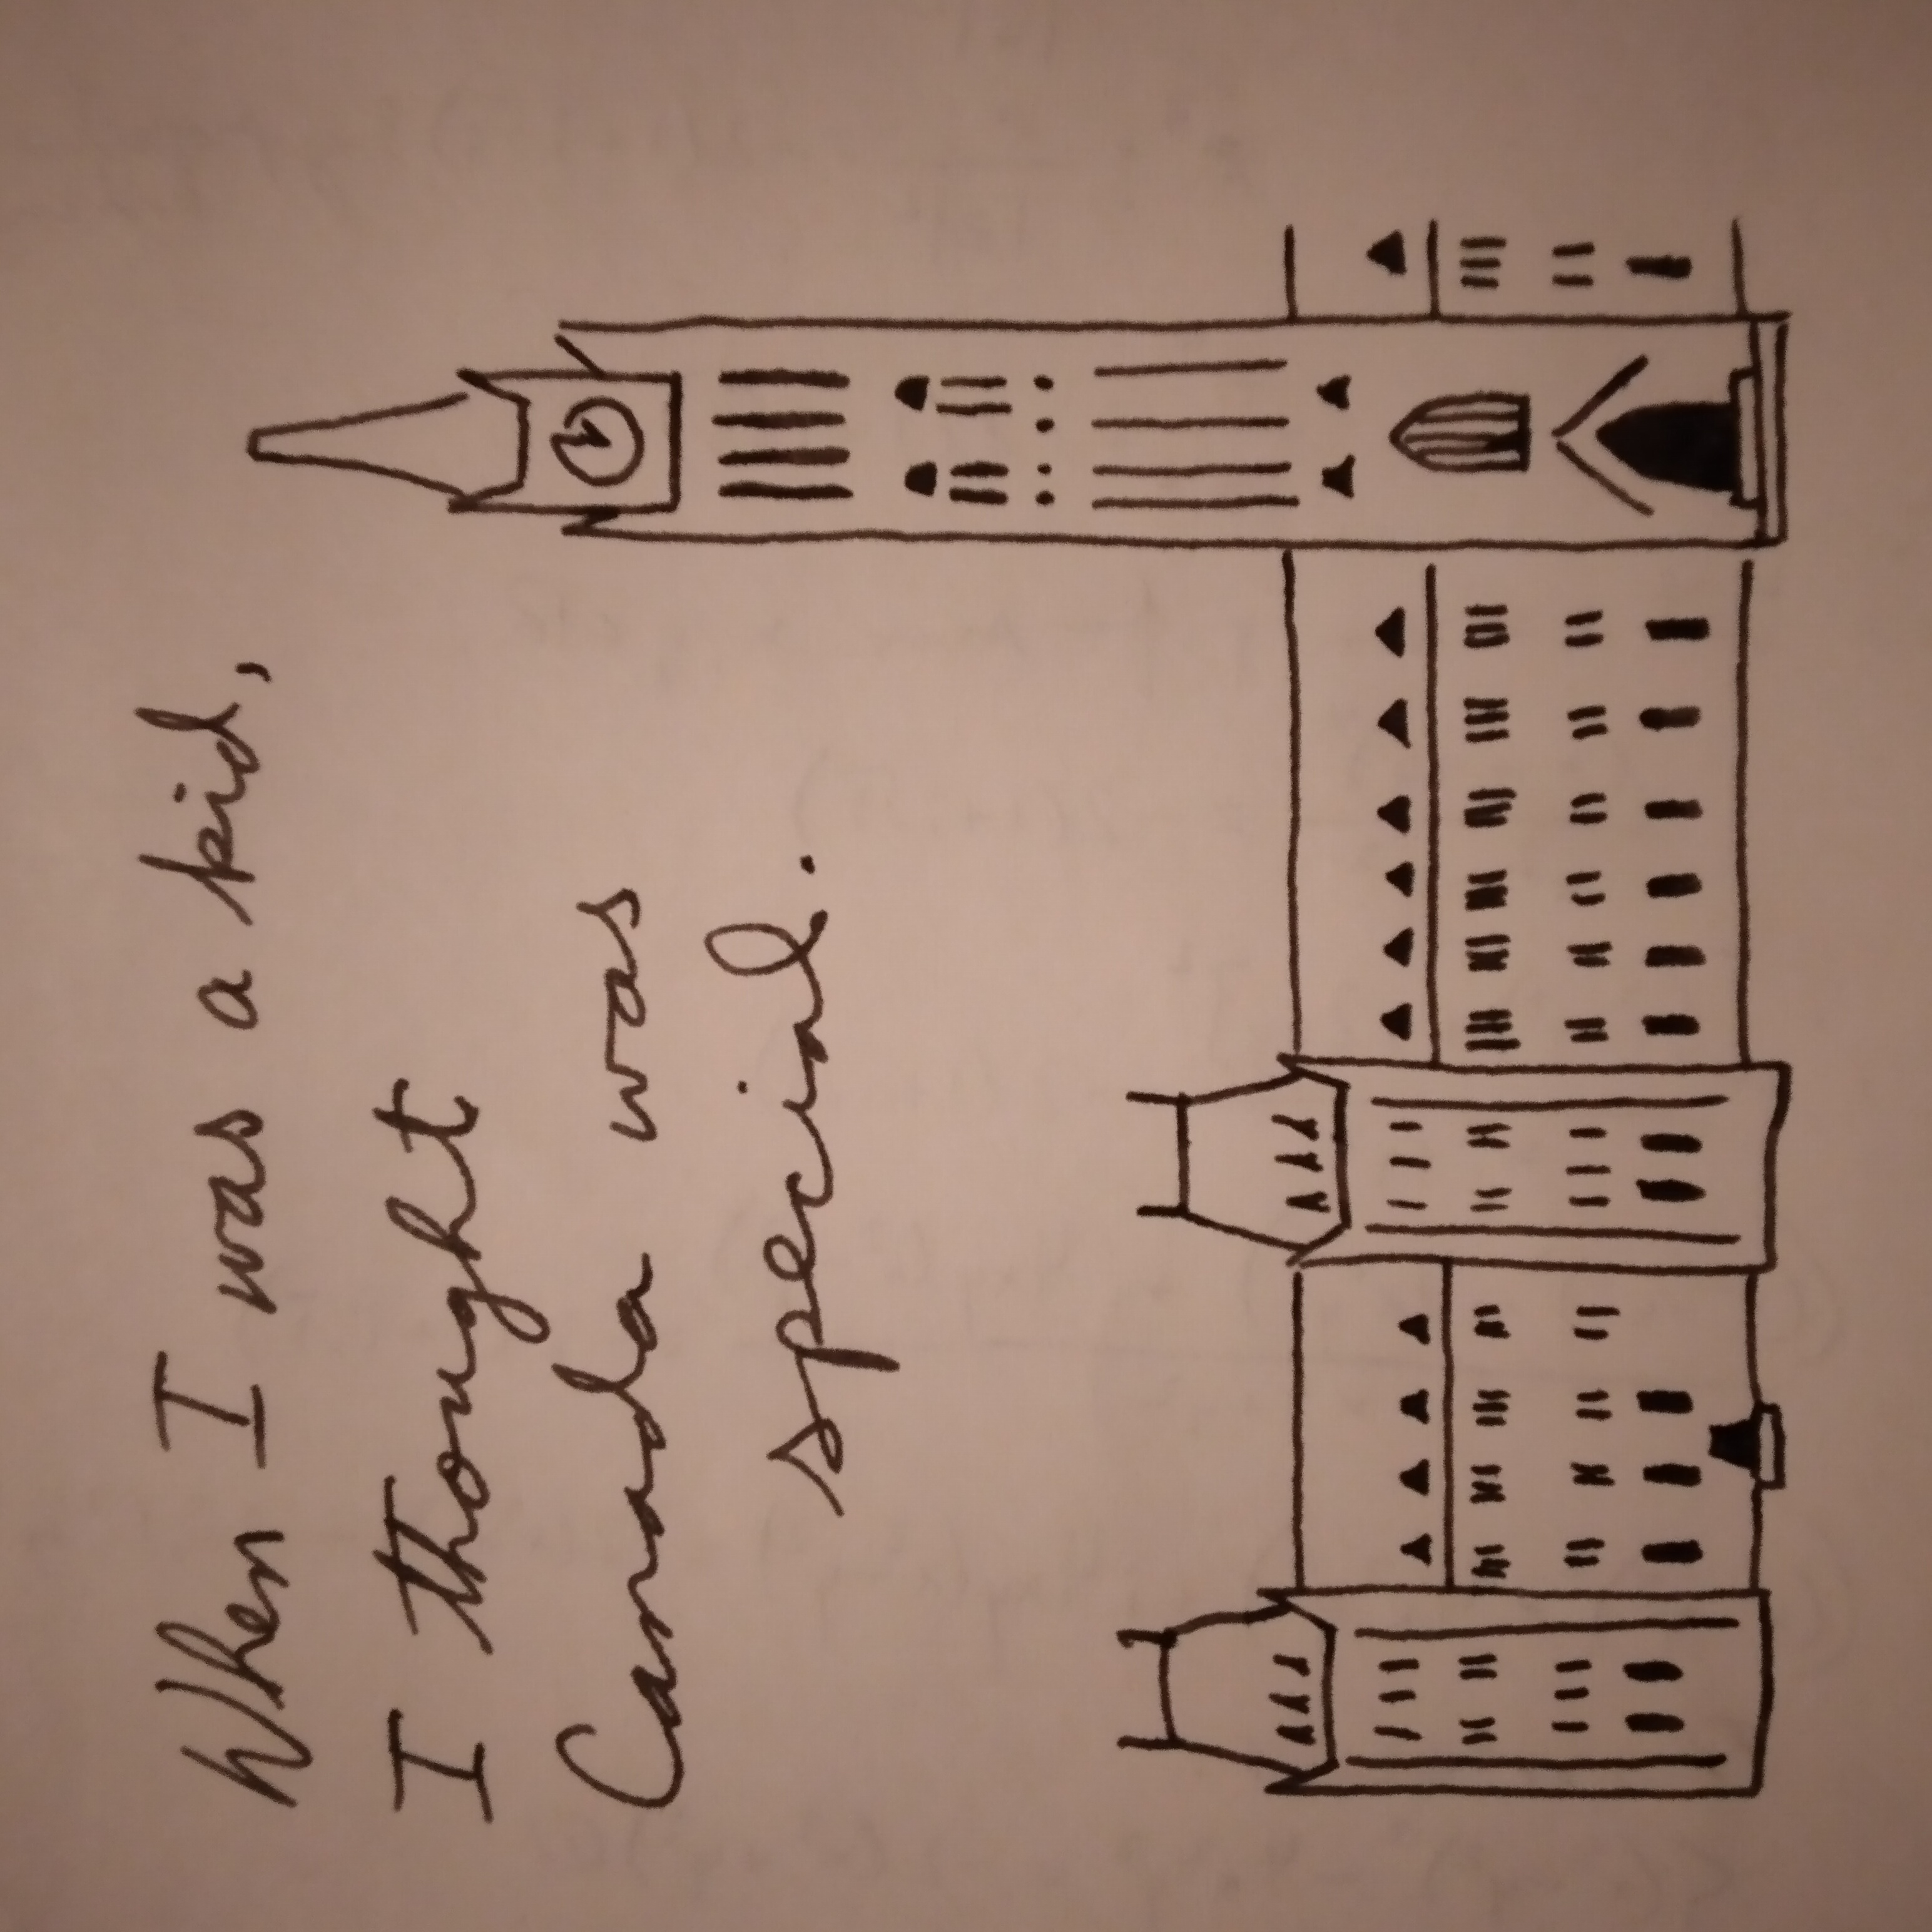 When I was a kid,
I thought
Canada was
special.